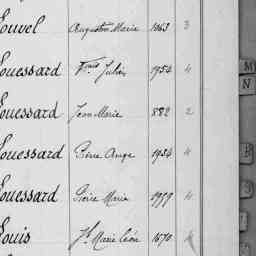 Louvel Augustin Marie 1063 3
Louessard Fçois Julien 1954 4
Louessard Jean Marie 882 2
Louessard Pierre Ange 1954 4
Louessard Pierre Marie 1979 4
Louis Jh Marie Léon 1670 4
M
N